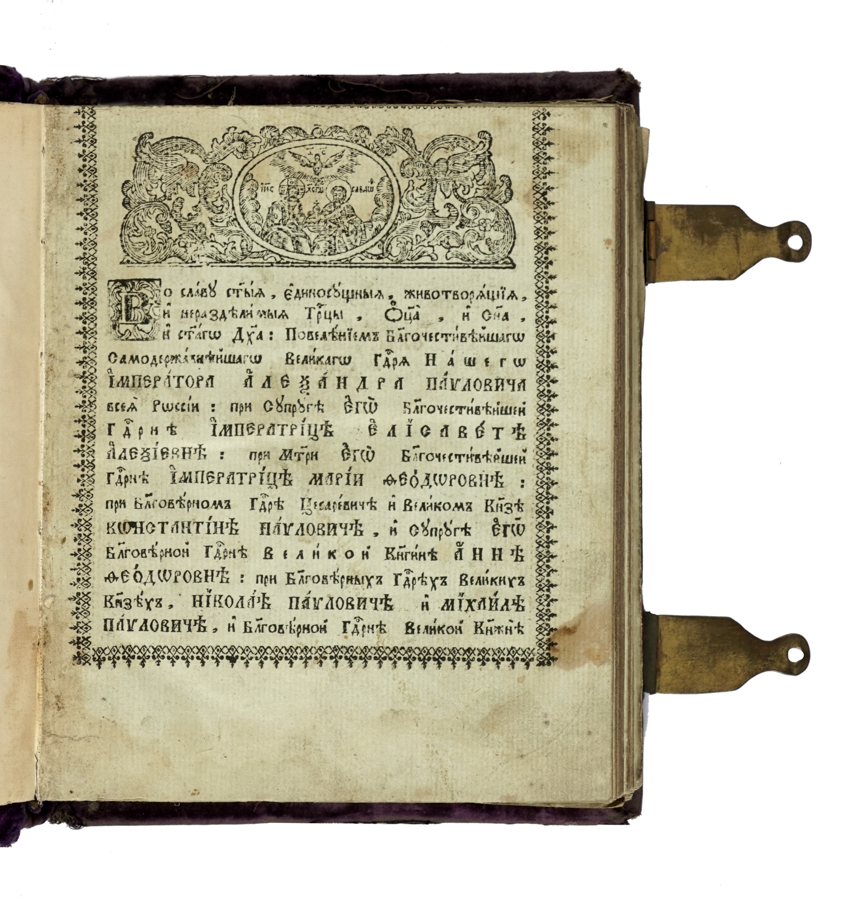 Во сла́вꙋ ст҃ы́ѧ, є҆диносꙋ́щныѧ, животворѧ́щїѧ,
и҆ нераздѣли́мыѧ Трⷪ҇цы, Ѻ҆ц҃а̀, и҆ Сн҃а,
и҆ ст҃а́гѡ Дх҃а: Повелѣ́нїемъ Бл҃гочести́вѣйшагѡ
Самодержа́внѣйшагѡ Вели́кагѡ Гдⷭ҇рѧ На́шегѡ
І҆МПЕРА́ТОРА А҆ЛЕѮА́НДРА ПА́ѴЛОВИЧА
всеѧ̀ Рѡссі́и: при Сꙋпрꙋ́гѣ Є҆ГѠ̀ Бл҃гочести́вѣйшей
Гдⷭ҇рнѣ І҆МПЕРАТРИ́ЦѢ Е҆ЛІСАВЕ́ТѢ
А҆ЛЕѮІ́ЕВНѢ: при Мт҃ри Є҆ГѠ̀ Бл҃гочести́вѣйшей
Гдⷭ҇рнѣ І҆МПЕРАТРИ́ЦѢ МАРІ́И ѲЕО́ДѠРОВНѢ:
при Бл҃говѣ́рномъ Гдⷭ҇рѣ Цесаре́вичѣ и҆ Вели́комъ Кн҃зѣ
КѠНСТАНТІ́НѢ ПА́ѴЛОВИЧѢ, и҆ Сꙋпрꙋ́гѣ Є҆ГѠ̀
Бл҃говѣ́рной Гдⷭ҇рнѣ Вели́кой Кн҃ги́нѣ А҆́ННѢ
ѲЕО́ДѠРОВНѢ: при Бл҃говѣ́рныхъ Гдⷭ҇рѣхъ Вели́кихъ
Кн҃зѣ́хъ, НІКОЛА́Ѣ ПА́ѴЛОВИЧѢ и҆ МІХАИ́ЛѢ
ПА́ѴЛОВИЧѢ, и҆ Бл҃говѣ́рной Гдⷭ҇рнѣ Вели́кой Кн҃жнѣ̀